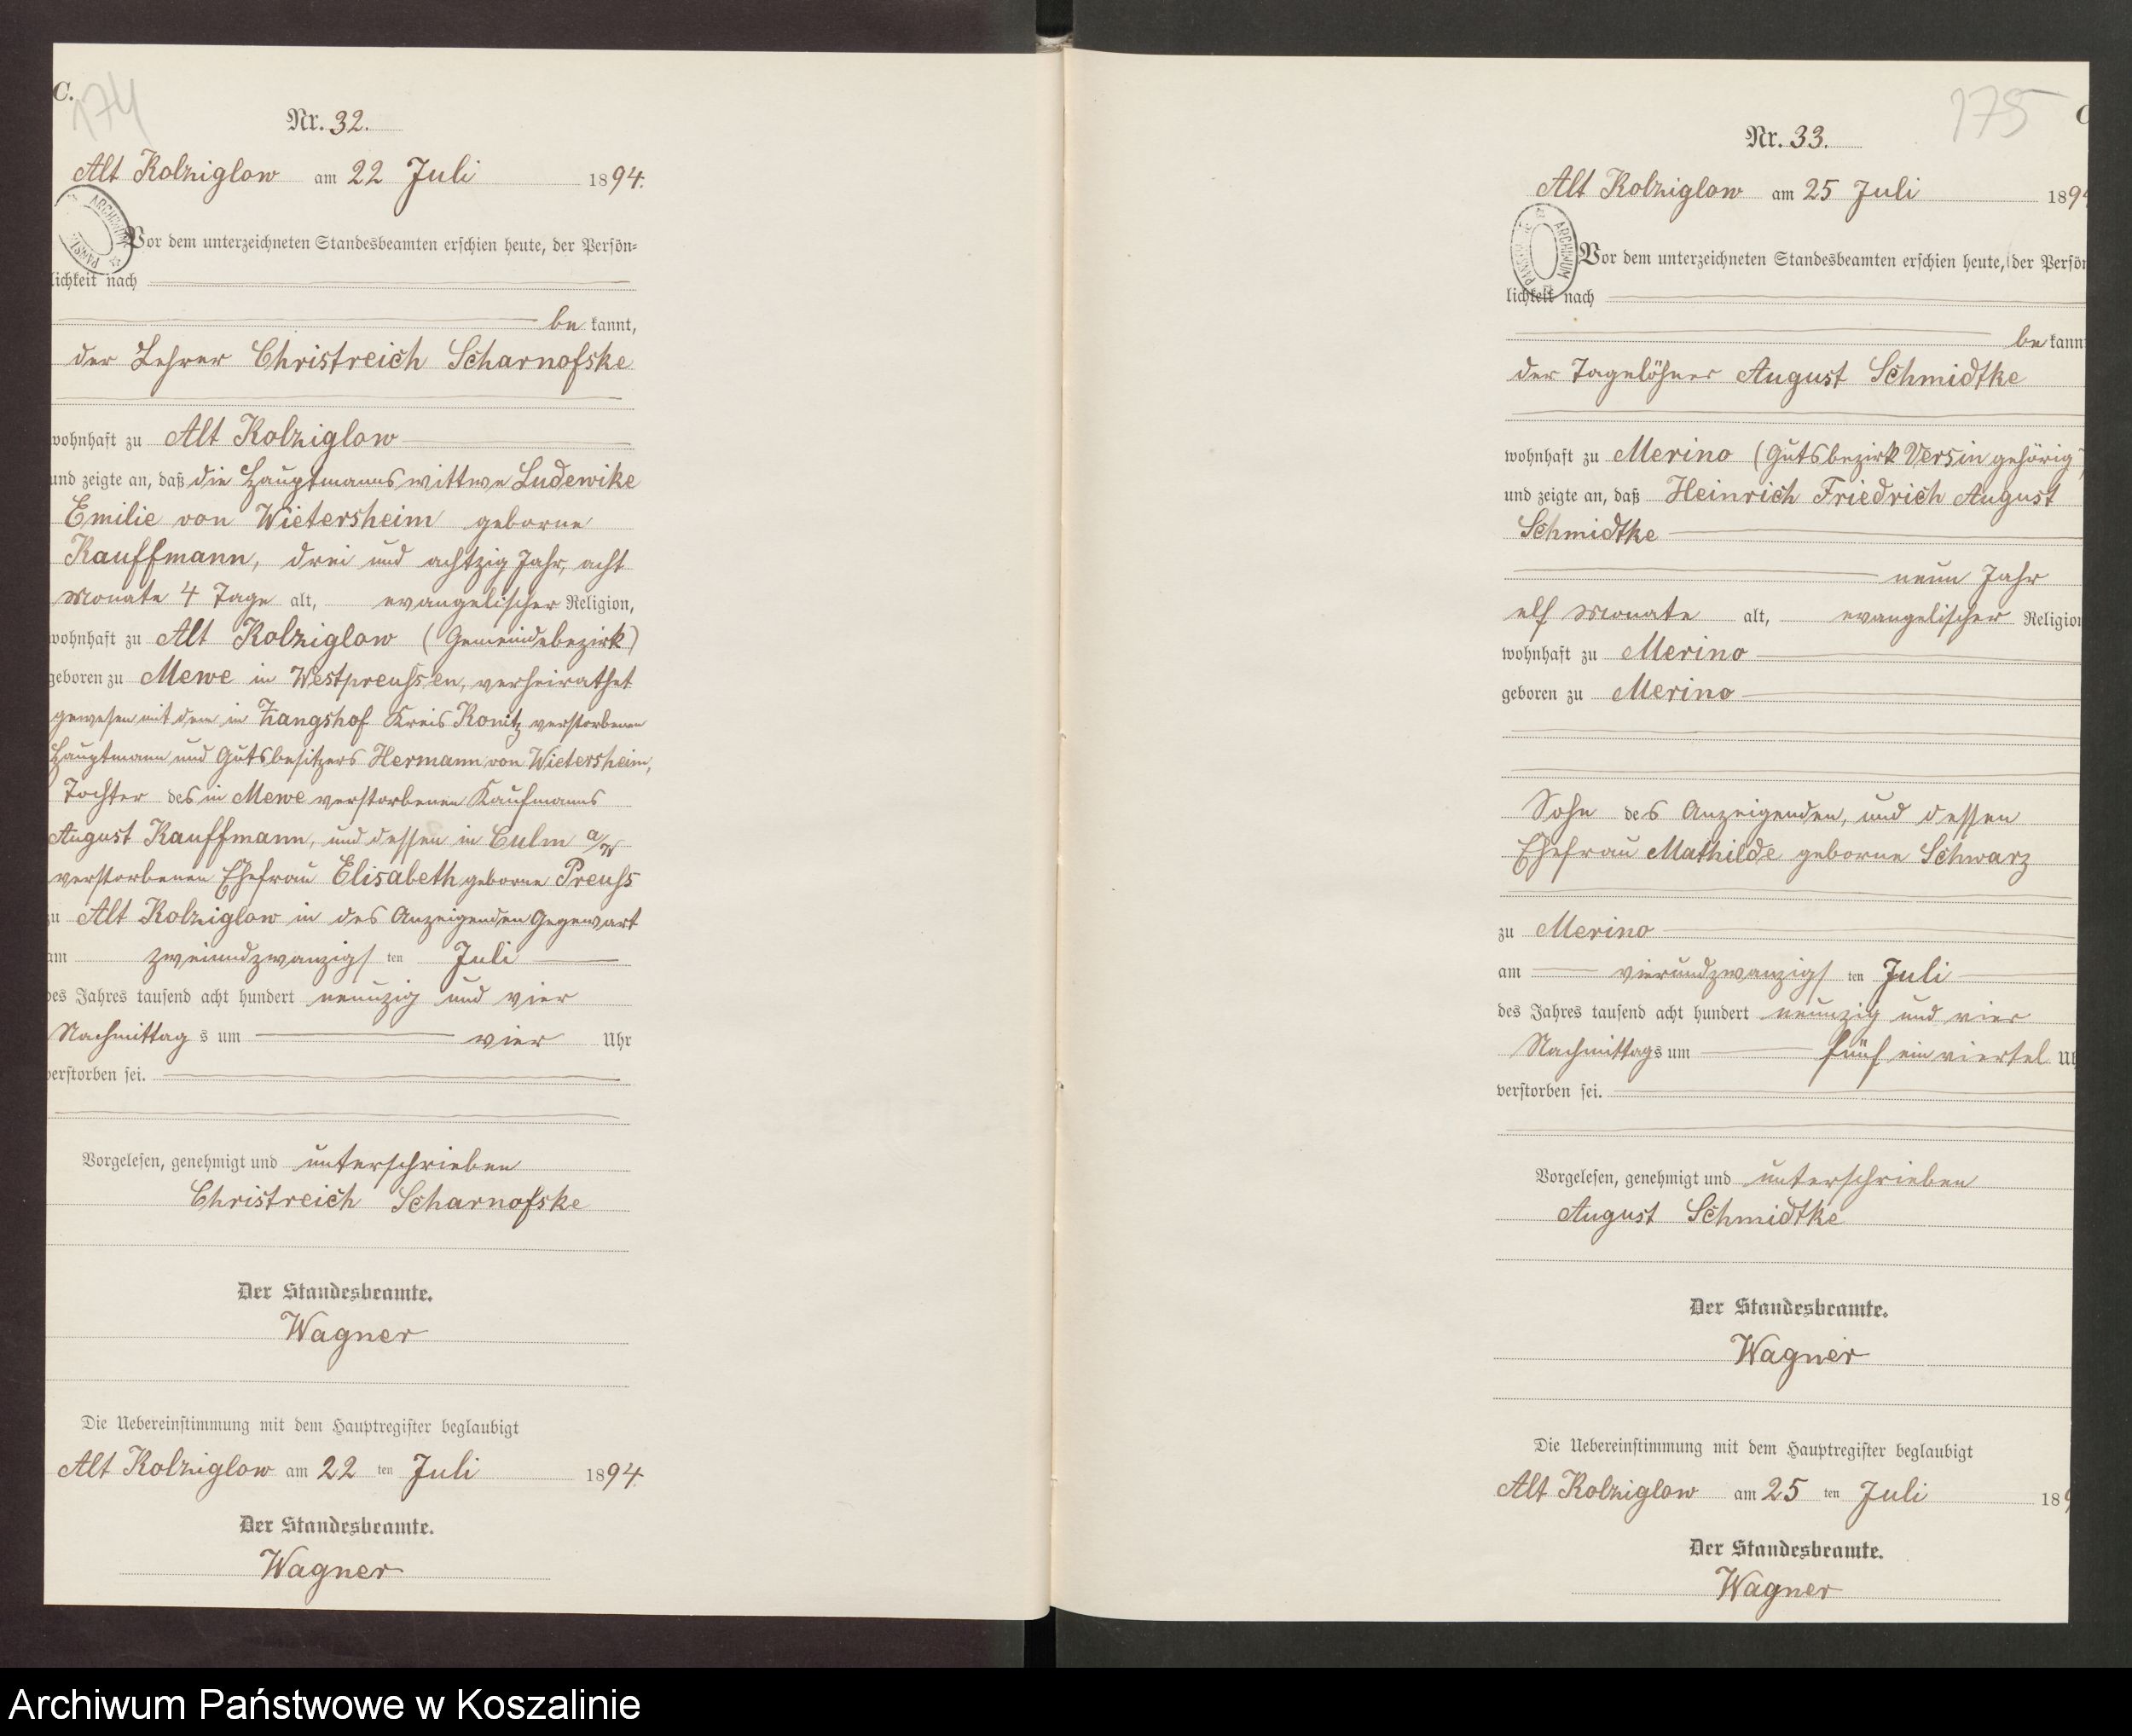 C.
174
Nr. 32.
Alt Kolziglow am 22 Juli 1894.
Vor dem unterzeichneten Standesbeamten erschien heute, der Persön-
lichkeit nach
be kannt,
der Lehrer Christreich Scharnofske
wohnhaft zu Alt Kolziglow
und zeigte an, daß die Hauptmannswittwe Ludewike
Emilie von Wietersheim geborne
Kauffmann, drei und achtzig Jahr, acht
Monate 4 Tage alt, evangelischer Religion,
wohnhaft zu Alt Kolziglow (Gemeindebezirk)
geboren zu Mewe in Westpreußen, verheirathet
gewesen mit dem in Zangshof Kreis Konitz verstorbenen
Hauptmann und Gutsbesitzers Hermann von Wietersheim,
Tochter des in Mewe verstorbenen Kaufmanns
August Kauffmann, und dessen in Culm a/W
verstorbenen Ehefrau Elisabeth geborne Preuß
zu Alt Kolziglow in des Anzeigenden Gegenwart
am zweiundzwanzigsten Juli
des Jahres tausend acht hundert neunzig und vier
Nachmittag s um vier Uhr
verstorben sei.
Vorgelesen, genehmigt und unterschrieben
Christreich Scharnofske
Der Standesbeamte.
Wagner
Die Uebereinstimmung mit dem Hauptregister beglaubigt
Alt Kolziglow am 22 ten Juli 1894.
Der Standesbeamte.
Wagner
175
C
Nr. 33.
Alt Kolziglow am 25 Juli 1894
Vor dem unterzeichneten Standesbeamten erschien heute, der Persön
lichkeit nach
be kannt
der Tagelöhner August Schmidtke
wohnhaft zu Merino (Gutsbezirk Versin gehörig)
und zeigte an, daß Heinrich Friedrich August
Schmidtke
neun Jahr
elf Monate alt, evangelischer Religion
wohnhaft zu Merino
geboren zu Merino
Sohn des Anzeigenden, und dessen
Ehefrau Mathilde geborne Schwarz
zu Merino
am vierundzwanzigsten Juli
des Jahres tausend acht hundert neunzig und vier
Nachmittags um fünf ein viertel Uh
verstorben sei.
Vorgelesen, genehmigt und unterschrieben
August Schmidtke
Der Standesbeamte.
Wagner
Die Uebereinstimmung mit dem Hauptregister beglaubigt
Alt Kolziglow am 25 ten Juli 189
Der Standesbeamte.
Wagner
Archiwum Państwowe w Koszalinie